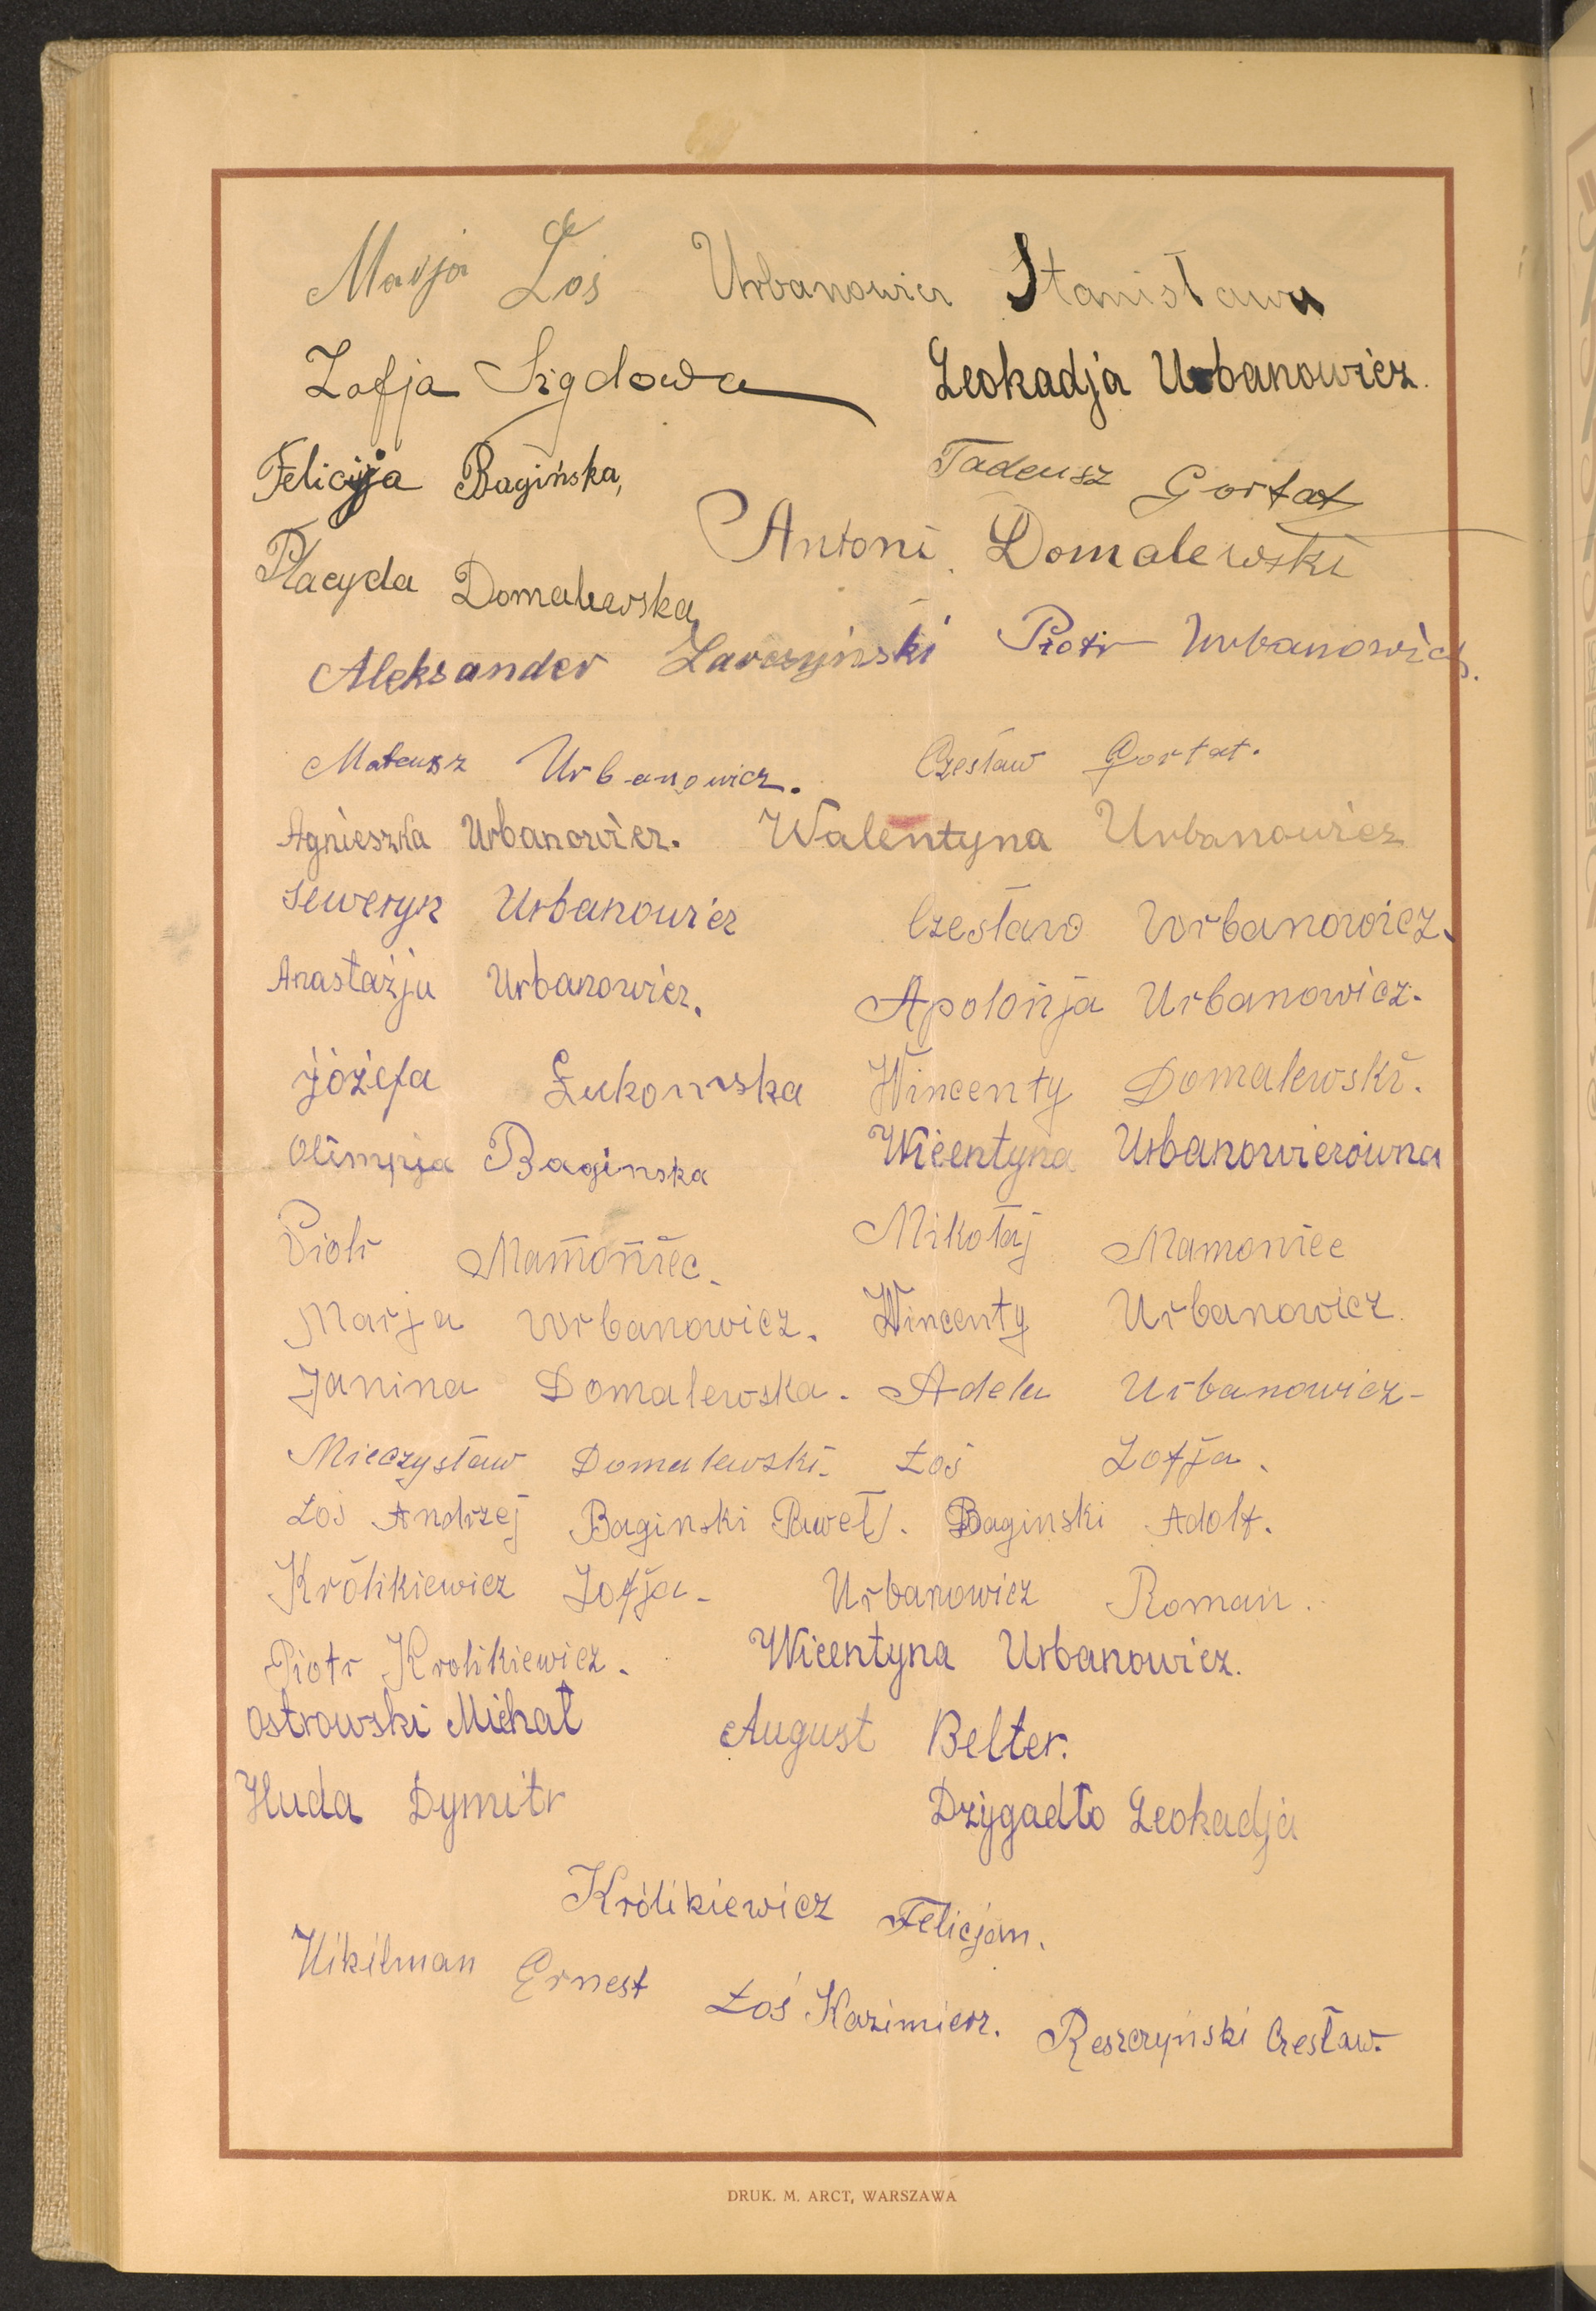 Marja Łoś Urbanowicz Stanisława
Zofja Sigdowa Leokadja Urbanowicz.
Felicija Bagińska, Tadeusz Gortat
Placyda Domalewska Antoni Domalewski
Aleksander Piotr Urbanowicz.
Mateusz Urbanowicz. Czesław Gortat.
Agnieszka Urbanowicz. Walentyna Urbanowicz
Seweryn Urbanowicz Czesław Urbanowicz.
Anastazja Urbanowicz. Apolonja Urbanowicz.
Józefa Łukowska Wincenty Domalewski.
Olimpja Baginska Wicentyna Urbanowiczówna
Piotr Mamoniec. Mikołaj Mamoniec
Marja Urbanowicz. Wincenty Urbanowicz.
Janina Domalewska. Adela Urbanowicz-
Mieczysław Domalewski. Łoś Zofja.
Łoś Andrzej Baginski Paweł. Baginski Adolf.
Królikiewicz Zofja- Urbanowicz Roman.
Piotr Krolikiewicz. Wicentyna Urbanowicz.
Ostrowski Michał August Belter.
Huda Dymitr Dzygadło Leokadja
Królikiewicz Felicjan.
Ernest Łoś Kazimierz. Reszczyński Czesław.
DRUK. M. ARCT, WARSZAWA